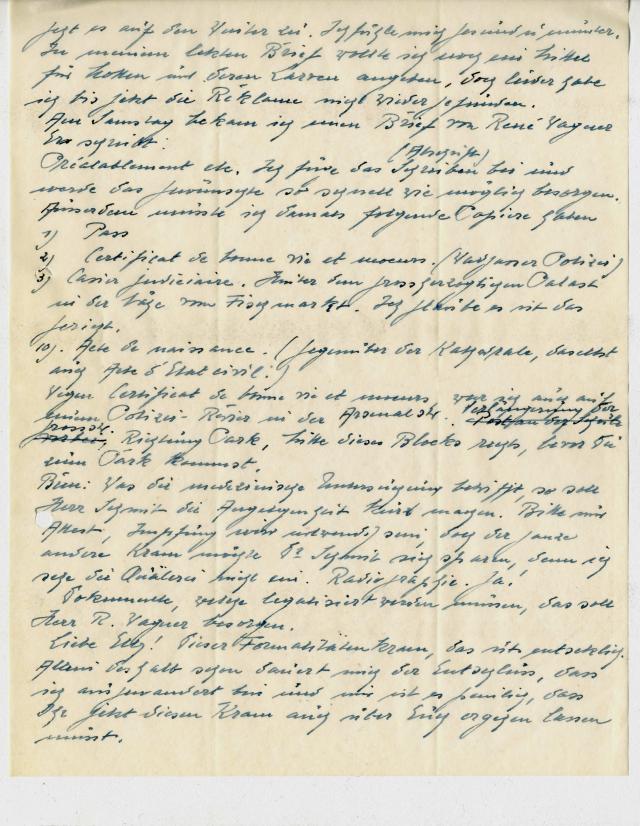 jetzt es auf den Winter zu. Ich fühle mich gesund u. munter.
In meinem letzten Brief wollte ich noch ein Mittel
für Motten und deren Larven angeben, doch leider habe
ich bis jetzt die Reklame nicht wieder gefunden.
Am Samstag bekam ich einen Brief von René Wagner
Er schreibt: (Abschrift)
Préalablement etc. Ich füge das Schreiben bei und
werde das Gewünschte so schnell wie möglich besorgen.
Ausserdem müsste ich damals folgende Copien haben
1) Pass
2) Certificat de bonne vie et moeurs. (Polizei)
3) Casier judiciaire. Hinter dem grossherzoglichen Palast
in der Nähe vom Fischmarkt. Ich glaube es ist das
Gericht.
10). Acte de naissance. (Gegenüber der Kathedrale, daselbst
auch Acte d'Etat civil.)
Wegen Certificat de bonne vie et moeurs, war ich auch auf
einem Polizei-Revier in der Arsenalstr. Verlängerung der
Grossstr. Richtung Park, Mitte dieses Blocks rechts, bevor Du
zum Park kommst.
Bem: Was die medizinische Untersuchung betrifft, so soll
Herr Schmit die Angelegenheit machen. Bitte nur
Attest, Impfung wird notwendig sein, doch der ganze
andere Kram möchte Dr. Schmit sich sparen, denn ich
sehe die Quälerei nicht ein. Radiographie. Ja!
Dokumente, welche legalisiert werden müssen, das soll
Herr R. Wagner besorgen.
Liebe Elly! Dieser Formalitätenkram, das ist entsetzlich.
Allein deshalb schon dauert mich der Entschluss, dass
ich ausgewandert bin und mir ist es peinlich, dass
Ihr jetzt diesen Kram auch über Euch ergehen lassen
müsst.